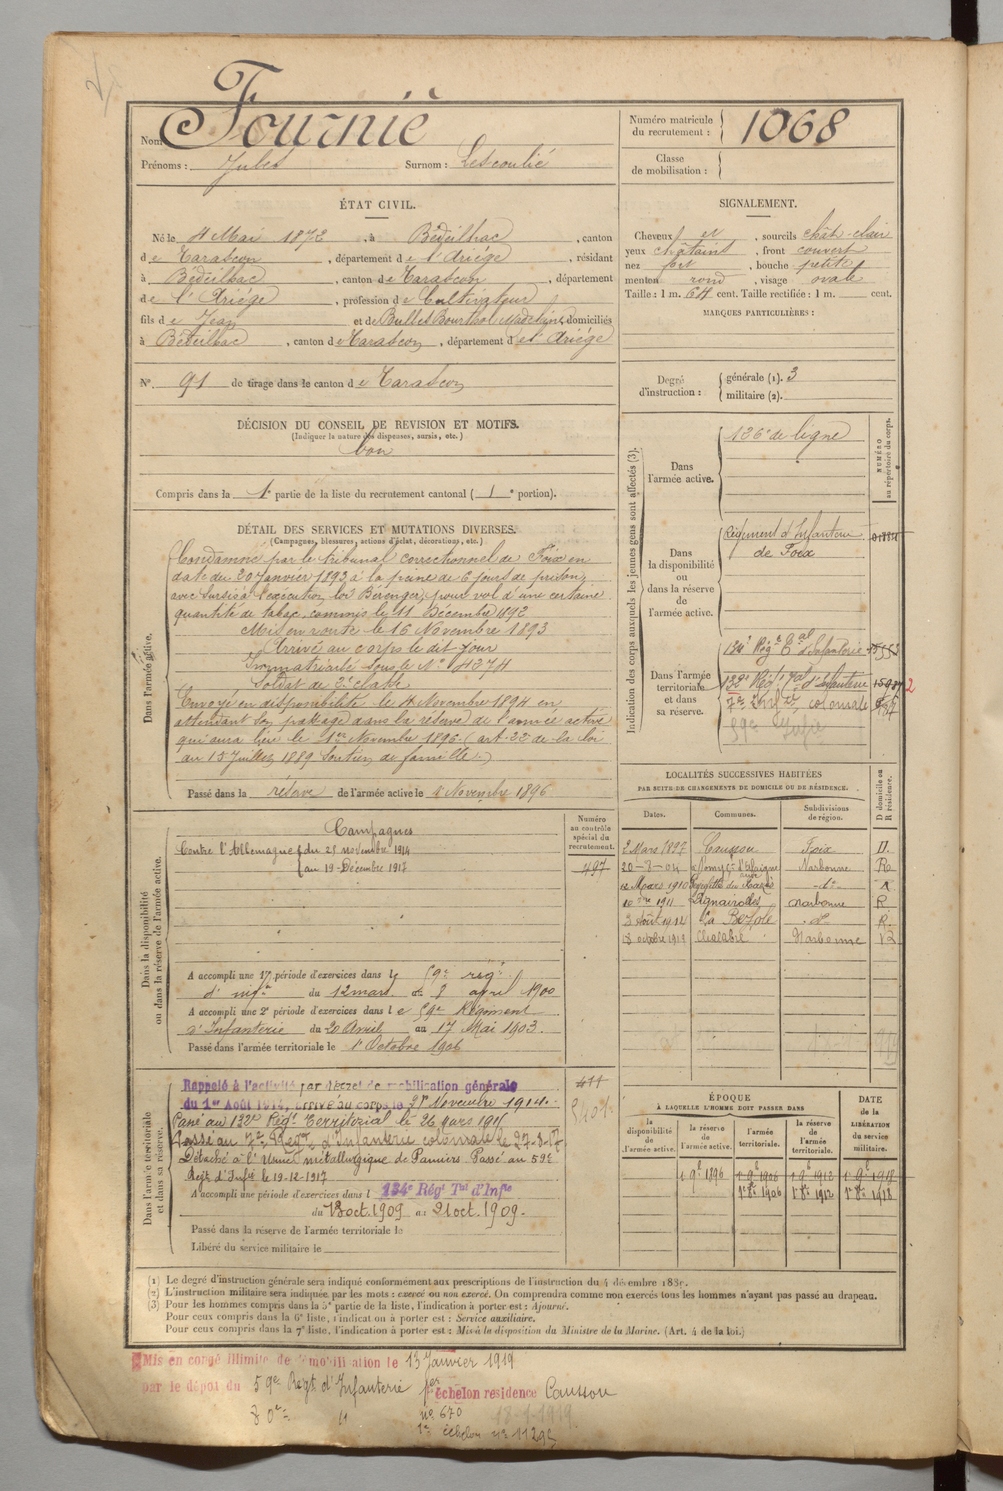 Nom : Fournié
Prénoms : Jules Surnom : Lescoulié
Numéro matricule du recrutement : 1068
Classe de mobilisation :
ÉTAT CIVIL.
Né le 4 Mai 1872, à Bédeilhac, canton
de Tarascon, département de l'Ariége, résidant
à Bédeilhac, canton de Tarascon, département
de l'Ariége, profession de Cultivateur
fils de Jean et de Madeleine, domiciliés
à Bédeilhac, canton de Tarascon, département de l'Ariége
N° 91 de tirage dans le canton de Tarascon
SIGNALEMENT.
Cheveux et, sourcils chât-clair
yeux châtains, front couvert
nez fort, bouche petite
menton rond, visage ovale
Taille : 1 m. 64 cent. Taille rectifiée : 1 m. cent.
MARQUES PARTICULIÈRES :
Degré d'instruction : générale (1). 3
militaire (2).
DÉCISION DU CONSEIL DE REVISION ET MOTIFS.
(Indiquer la nature des dispenses, sursis, etc.)
bon
Compris dans la 1e partie de la liste du recrutement cantonal (1e portion).
DÉTAIL DES SERVICES ET MUTATIONS DIVERSES.
(Campagnes, blessures, actions d'éclat, décorations, etc.)
Dans l'armée active.
Condamné par le tribunal correctionnel de Foix en
date du 20 Janvier 1893 à la peine de 6 jours de prison,
avec sursis à l'exécution, loi Bérenger, pour vol d'une certaine
quantité de tabac, commis le 11 Décembre 1892
Mis en route le 16 Novembre 1893
Arrivé au corps le dit jour
Immatriculé sous le N° 4374
Soldat de 2e classe
Envoyé en disponibilité le 4 Novembre 1894 en
attendant son passage dans la réserve de l'armée active
qui aura lieu le 1er Novembre 1896 (art 22 de la loi
du 15 Juillet 1889 Soutien de famille.)
Passé dans la réserve de l'armée active le 1 Novembre 1896
Indication des corps auxquels les jeunes gens sont affectés (3).
NUMÉRO au répertoire du corps.
Dans l'armée active.
126e de ligne
Dans la disponibilité ou dans la réserve de l'armée active.
Régiment d'Infanterie
de Foix
Dans l'armée territoriale et dans sa réserve.
134e Régt Tal d'Infanterie
132e Régt Tal d'Infanterie
7e Inf. coloniale
59e Infie
LOCALITÉS SUCCESSIVES HABITÉES
PAR SUITE DE CHANGEMENTS DE DOMICILE OU DE RÉSIDENCE.
Dates. Communes. Subdivisions de région. D domicile ou R résidence.
2 Mars 1897 Caussou Foix D.
20-8-04 Narbonne R
Mars 1910 do R
1911 Lignairolles Narbonne R
3 Août 1912 La Bezole do R.
octobre 1912 Chalabre Narbonne R
Dans la disponibilité ou dans la réserve de l'armée active.
Numéro au contrôle spécial du recrutement.
497
Campagnes
Contre l'Allemagne du 25 novembre 1914
au 19 Décembre 1917
A accompli une 1re période d'exercices dans le 59e régt
d'infie du 12 mars au 8 avril 1900
A accompli une 2e période d'exercices dans le 59e Régiment
d'Infanterie du 20 Avril au 17 Mai 1903.
Passé dans l'armée territoriale le 1r Octobre 1906
Dans l'armée territoriale et dans sa réserve.
Rappelé à l'activité par décret de mobilisation générale
du 1er Août 1914, arrivé au corps le 25 Novembre 1914.
Passé au 132e Régt Territorial le 26 mars 1915
Passé au 7e Régt d'Infanterie coloniale le 27-3-17
Détaché à l'Usine métallurgique de Pamiers. Passé au 59e
Régt d'Infie le 19-12-1917
A accompli une période d'exercices dans l 134e Régt Tal d'Infie
du 13 oct. 1909 au 21 oct. 1909.
Passé dans la réserve de l'armée territoriale le
Libéré du service militaire le
ÉPOQUE
À LAQUELLE L'HOMME DOIT PASSER DANS
la disponibilité de l'armée active. la réserve de l'armée active. l'armée territoriale. la réserve de l'armée territoriale.
DATE de la LIBÉRATION du service militaire.
1 9e 1896 1r 9e 1906 1r 9e 1912 1r 9e 1918
1r 8e 1906 1r 8e 1912 1r 8e 1918
(1) Le degré d'instruction générale sera indiqué conformément aux prescriptions de l'instruction du 4 décembre 1889.
(2) L'instruction militaire sera indiquée par les mots : exercé ou non exercé. On comprendra comme non exercés tous les hommes n'ayant pas passé au drapeau.
(3) Pour les hommes compris dans la 5e partie de la liste, l'indication à porter est : Ajourné.
Pour ceux compris dans la 6e liste, l'indication à porter est : Service auxiliaire.
Pour ceux compris dans la 7e liste, l'indication à porter est : Mis à la disposition du Ministre de la Marine. (Art. 4 de la loi.)
Mis en congé illimité de démobilisation le 13 Janvier 1919
par le dépot du 59e Régt d'Infanterie 1er échelon residence Caussou
no 670 18-1-1919
1er échelon